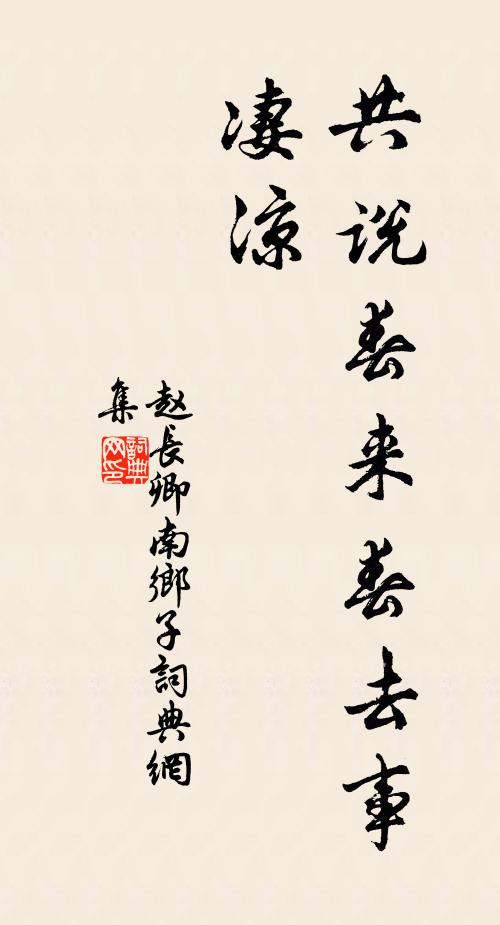 共说春来春去事
凄凉
赵長卿南鄉子詞典網
集
詞典
网印